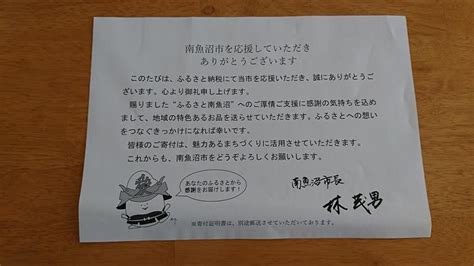 南魚沼市を応援していただき
ありがとうございます
このたびは、ふるさと納税にて当市を応援いただき、誠にありがとうご
ざいます。心より御礼申し上げます。
賜りました“ふるさと南魚沼”へのご厚情ご支援に感謝の気持ちを込め
まして、地域の特色あるお品を送らせていただきます。ふるさとへの想い
をつなぐきっかけになれば幸いです。
皆様のご寄付は、魅力あるまちづくりに活用させていただきます。
これからも、南魚沼市をどうぞよろしくお願いします。
あなたのふるさとから
感謝をお届けします！
南魚沼市長
林 茂男
※寄付証明書は、別途郵送させていただいております。